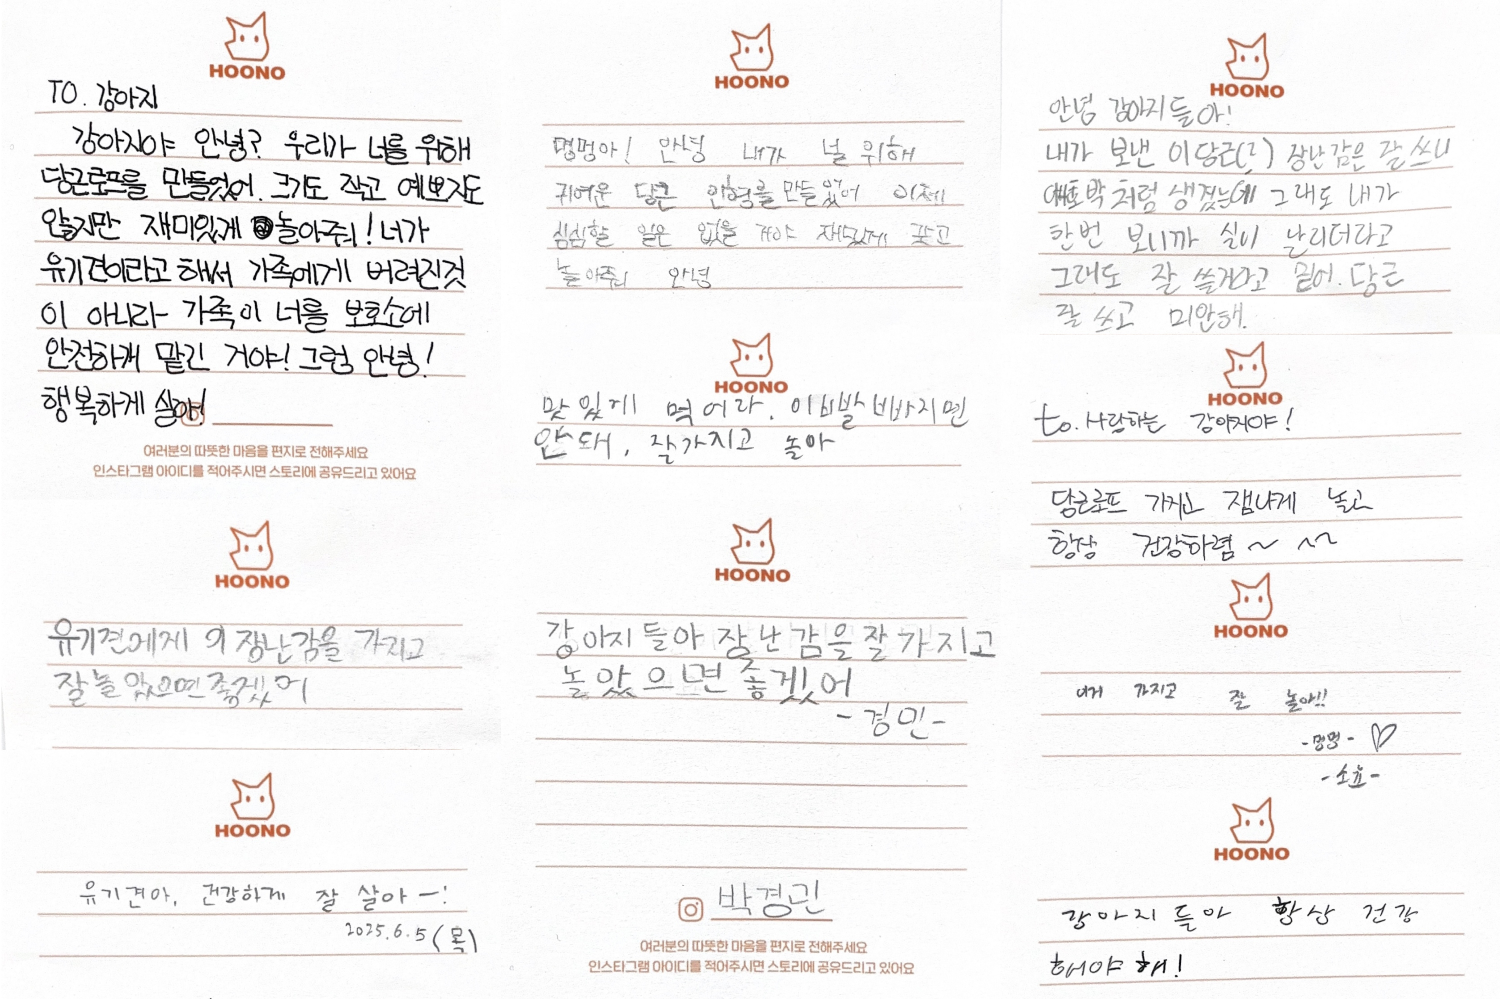 HOONO
TO. 강아지
강아지야 안녕? 우리가 너를 위해
당근로프를 만들었어. 크기도 작고 예쁘지도
않지만 재미있게 놀아줘! 너가
유기견이라고 해서 가족에게 버려진것
이 아니라 가족이 너를 보호소에
안전하게 맡긴 거야! 그럼 안녕!
행복하게 살아!
여러분의 따뜻한 마음을 편지로 전해주세요
인스타그램 아이디를 적어주시면 스토리에 공유드리고 있어요
HOONO
유기견에게 이 장난감을 가지고
잘 놀았으면 좋겠어
HOONO
유기견아, 건강하게 잘 살아ㅡ!
2025.6.5(목)
HOONO
멍멍아! 안녕 내가 널 위해
귀여운 당근 인형을 만들었어 이제
심심할 일은 없을 거야 재밌게 갖고
놀아줘 안녕
HOONO
맛있게 먹어라. 이빨 빠지면
안돼, 잘가지고 놀아
HOONO
강아지들아 장난감을 잘 가지고
놀았으면 좋겠어
-경민-
박경민
여러분의 따뜻한 마음을 편지로 전해주세요
인스타그램 아이디를 적어주시면 스토리에 공유드리고 있어요
HOONO
안녕 강아지들아!
내가 보낸 이당근(?) 장난감은 잘 쓰니
호박처럼 생겼는데 그래도 내가
한번 보니까 실이 난리더라고
그래도 잘 쓸거라고 믿어. 당근
잘 쓰고 미안해.
HOONO
to. 사랑하는 강아지야!
당근로프 가지고 잼나게 놀고
항상 건강하렴~
HOONO
이거 가지고 잘 놀아!!
-멍멍- ♡
-소효-
HOONO
강아지들아 항상 건강
해야 해!